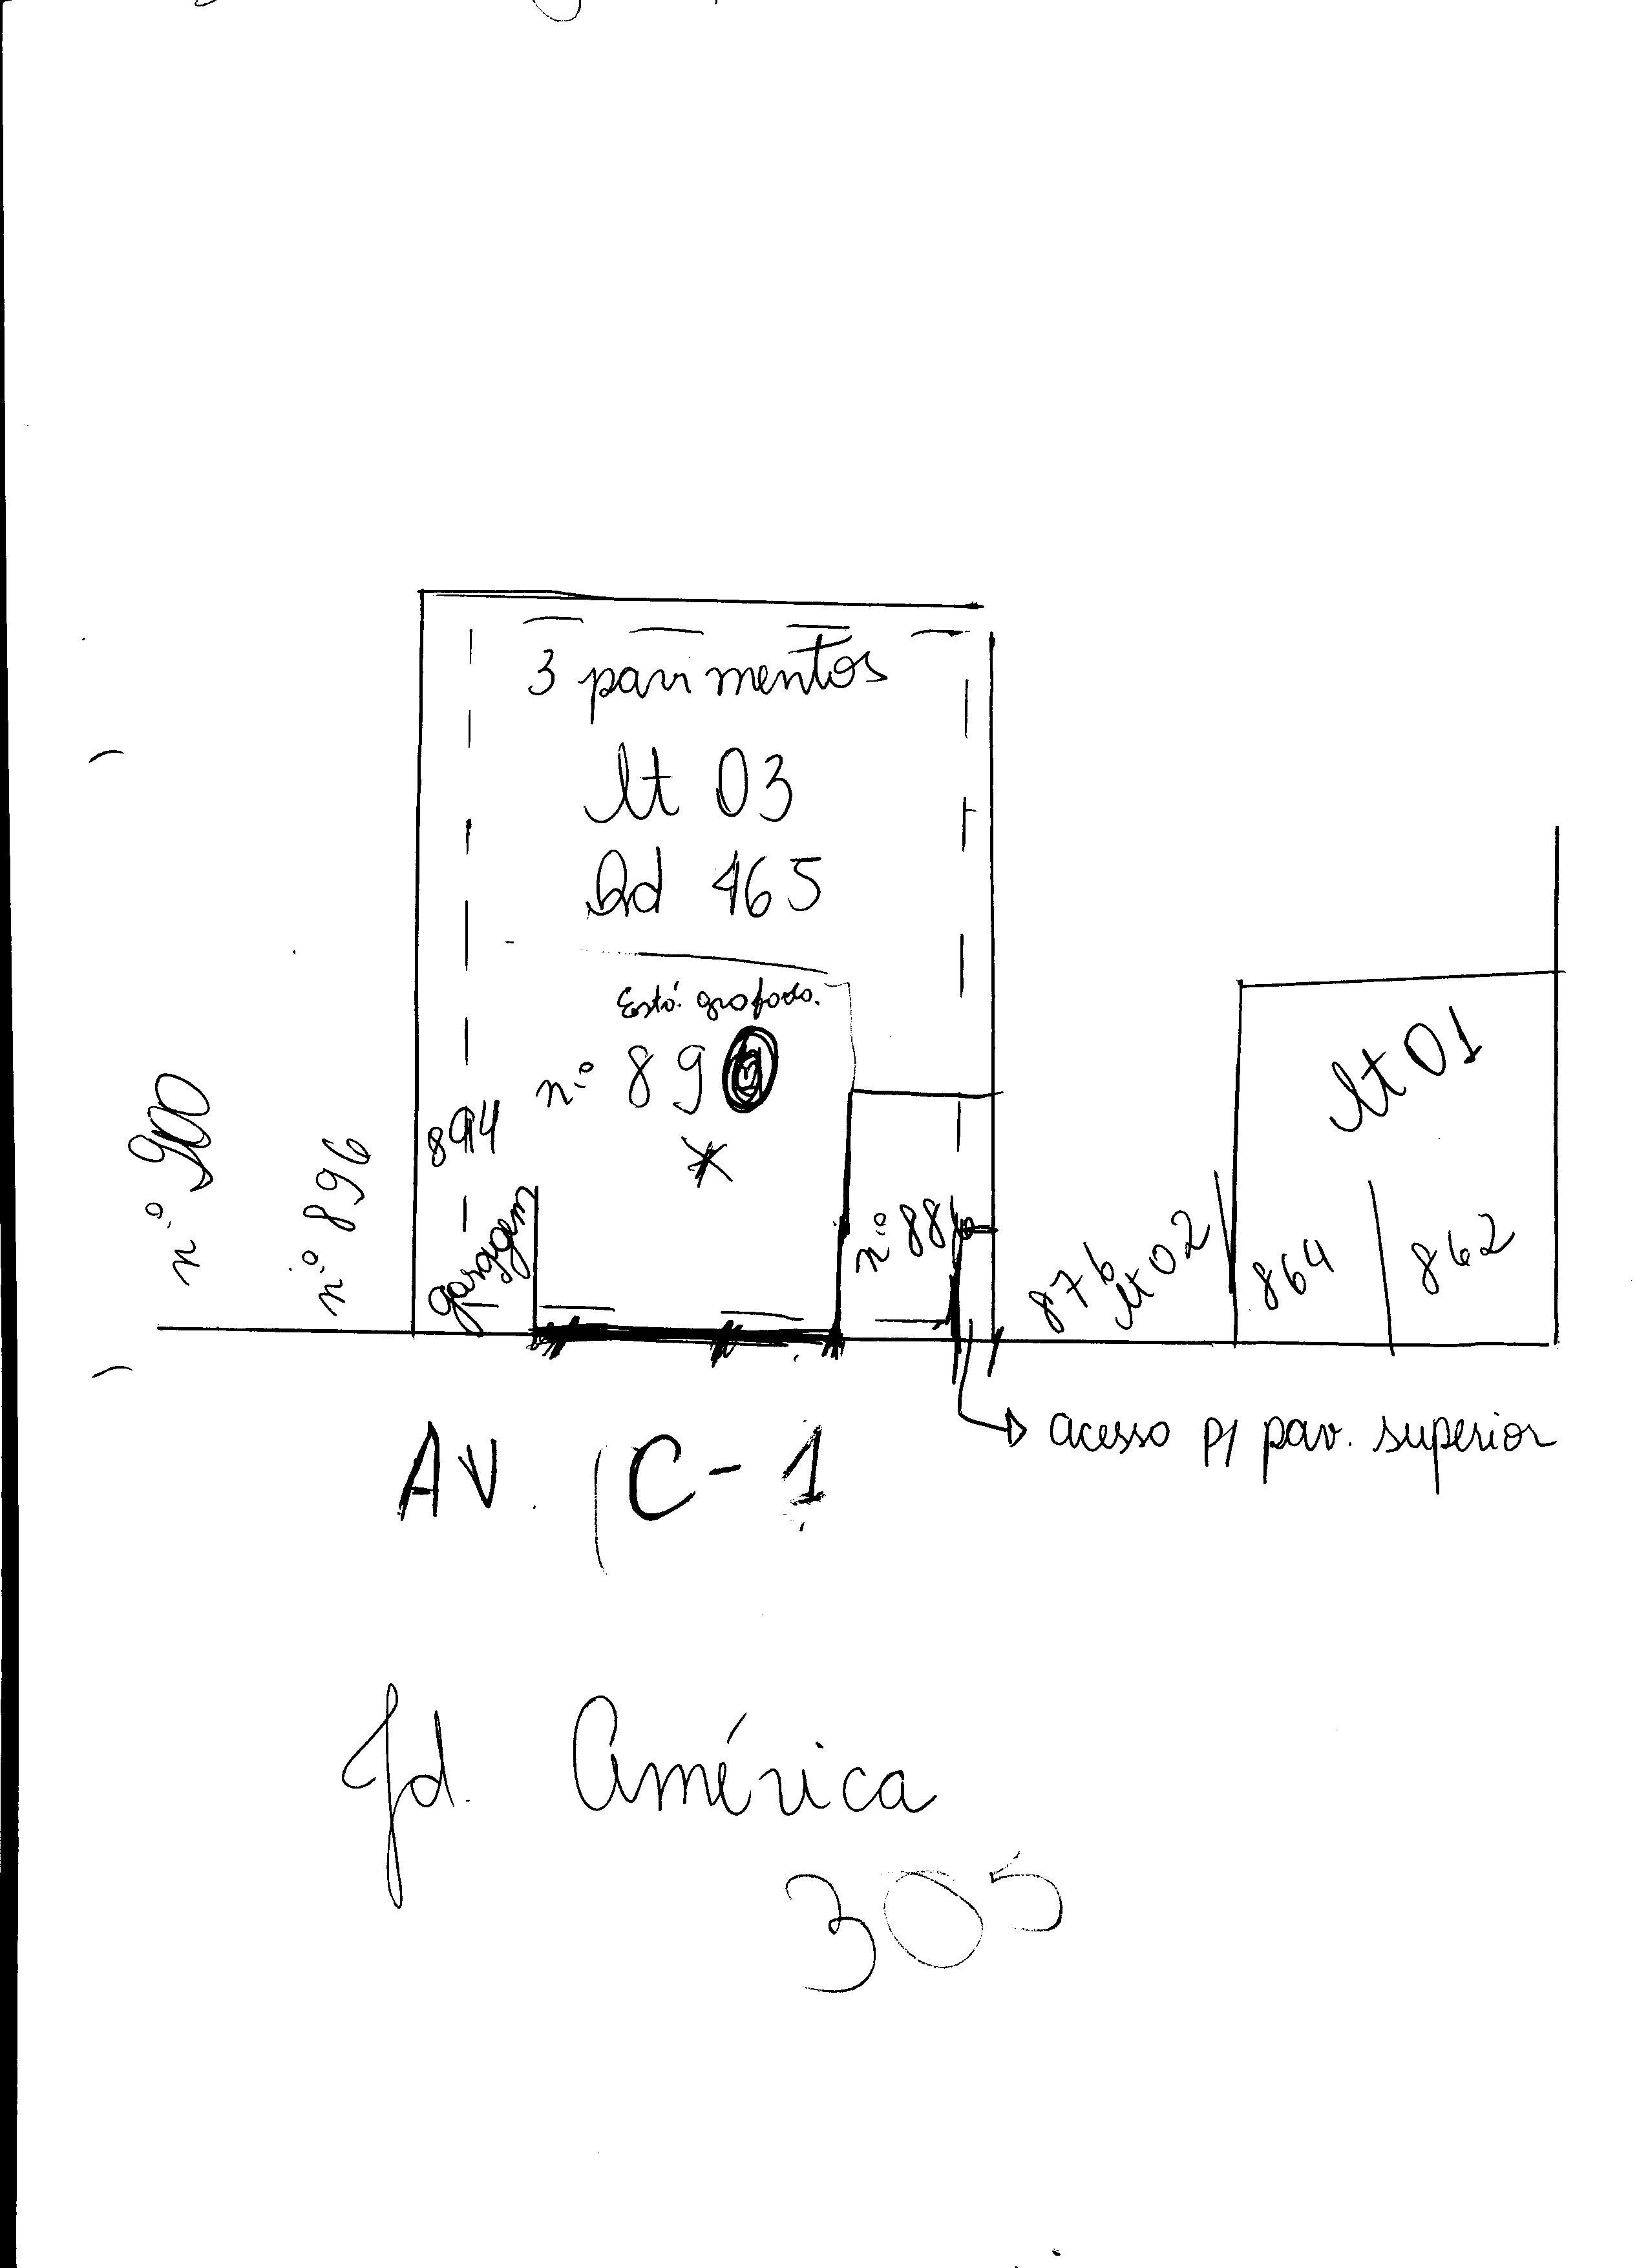 3 pavimentos
lt 03
Qd 465
Está grafado.
n.o 89
894
garagem
n.o 900
n.o 896
n.o 886
876
lt 02
lt 01
864
862
acesso p/ pav. superior
AV. C-1
Jd. América
305